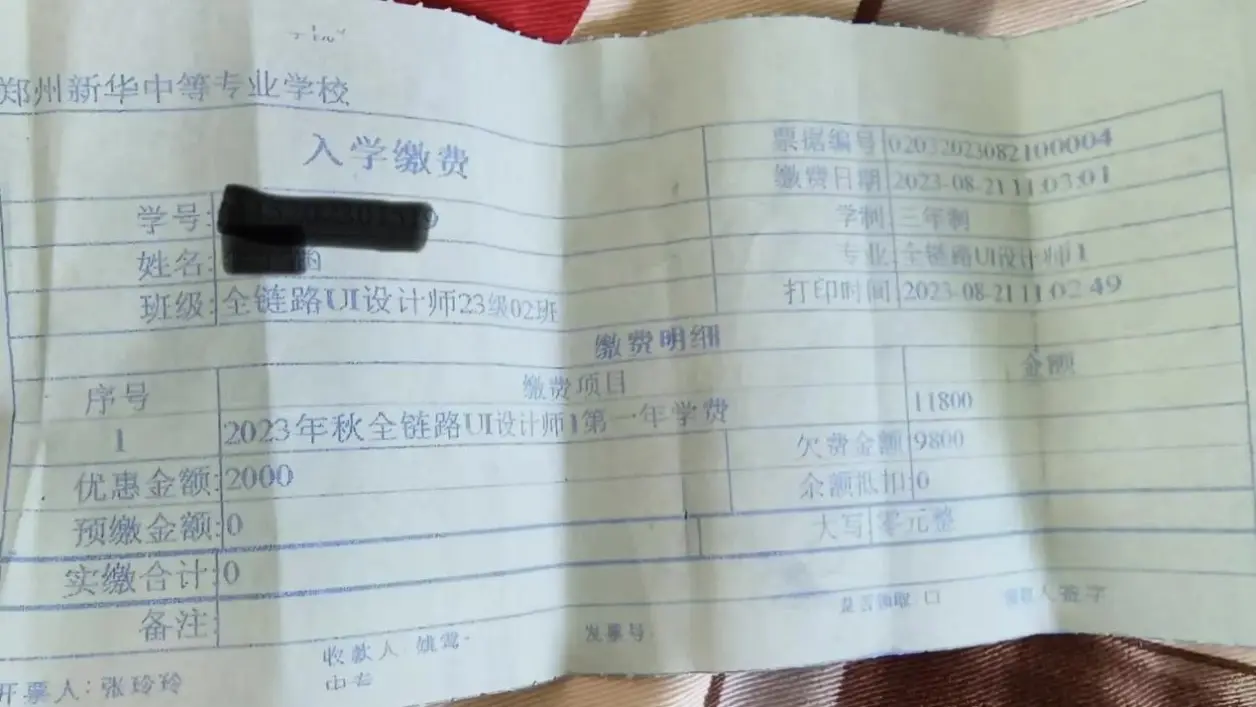 郑州新华中等专业学校
入学缴费
票据编号 020320230821​00004
缴费日期 2023-08-21 11:03:01
学号:
学制 三年制
姓名:
专业 全链路UI设计师1
班级: 全链路UI设计师23级02班
打印时间 2023-08-21 11:02:49
缴费明细
序号 缴费项目 金额
1 2023年秋全链路UI设计师1第一年学费 11800
优惠金额: 2000 欠费金额 9800
预缴金额: 0 余额抵扣 0
实缴合计: 0 大写 零元整
备注:
是否领取 口 领取人签字
开票人: 张玲玲 收款人 姚莺 发票号